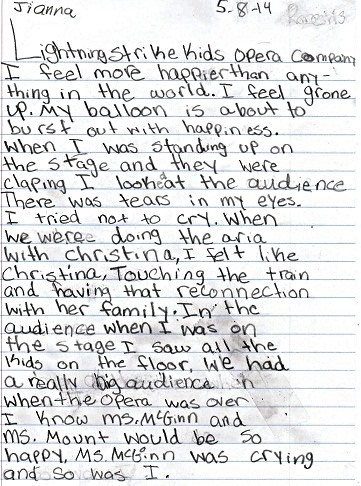 Jianna 5-8-14 Parents
Lightning strike kids opera company
I feel more happier than any-
thing in the world. I feel grone
up. My balloon is about to
burst out with happiness.
when I was standing up on
the stage and they were
claping I look at the audience
There was tears in my eyes.
I tried not to cry. When
we weree doing the aria
with christina, I felt like
Christina, Touching the train
and having that reconnection
with her family. In the
audience when I was on
the stage I saw all the
kids on the floor, we had
a really big audience
when the opera was over
I know ms. McGinn and
ms. Mount would be so
happy, Ms. McGinn was crying
and so was I.